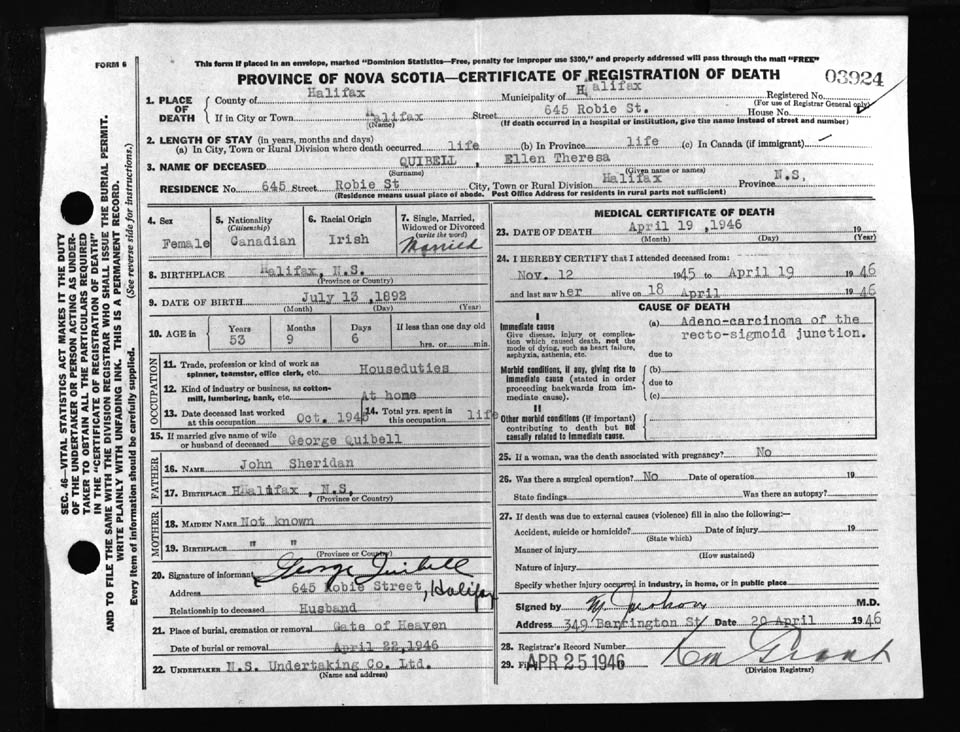 FORM 6
This form if placed in an envelope, marked "Dominion Statistics—Free, penalty for improper use $300," and properly addressed will pass through the mail "FREE"
PROVINCE OF NOVA SCOTIA—CERTIFICATE OF REGISTRATION OF DEATH
03924
1. PLACE OF DEATH
County of Halifax Municipality of Halifax Registered No.
(For use of Registrar General only)
If in City or Town Halifax Street 645 Robie St. House No.
(Name) (If death occurred in a hospital or institution, give the name instead of street and number)
2. LENGTH OF STAY (in years, months and days)
(a) In City, Town or Rural Division where death occurred life (b) In Province life (c) In Canada (if immigrant) —
3. NAME OF DECEASED QUIBELL , Ellen Theresa
(Surname) (Given name or names)
RESIDENCE No. 645 Street Robie St City, Town or Rural Division Halifax Province N.S.
(Residence means usual place of abode. Post Office Address for residents in rural parts not sufficient)
SEC. 46—VITAL STATISTICS ACT MAKES IT THE DUTY
OF THE UNDERTAKER OR PERSON ACTING AS UNDER-
TAKER TO OBTAIN ALL THE PARTICULARS REQUIRED
IN THE "CERTIFICATE OF REGISTRATION OF DEATH"
AND TO FILE THE SAME WITH THE DIVISION REGISTRAR WHO SHALL ISSUE THE BURIAL PERMIT.
WRITE PLAINLY WITH UNFADING INK. THIS IS A PERMANENT RECORD.
Every item of information should be carefully supplied. (See reverse side for instructions.)
4. Sex
Female
5. Nationality
(Citizenship)
Canadian
6. Racial Origin
Irish
7. Single, Married,
Widowed or Divorced
(write the word)
Married
8. BIRTHPLACE Halifax, N.S.
(Province or Country)
9. DATE OF BIRTH July 13 ,1892
(Month) (Day) (Year)
10. AGE in
Years Months Days If less than one day old
53 9 6 hrs. or min.
OCCUPATION
11. Trade, profession or kind of work as
spinner, teamster, office clerk, etc. Houseduties
12. Kind of industry or business, as cotton-
mill, lumbering, bank, etc. At home
13. Date deceased last worked
at this occupation Oct. 1945
14. Total yrs. spent in
this occupation life
15. If married give name of wife
or husband of deceased George Quibell
FATHER
16. NAME John Sheridan
17. BIRTHPLACE HHalifax , N.S,
(Province or Country)
MOTHER
18. MAIDEN NAME Not known
19. BIRTHPLACE " "
(Province or Country)
20. Signature of informant George Quibell
Address 645 Robie Street, Halifax
Relationship to deceased Husband
21. Place of burial, cremation or removal Gate of Heaven
Date of burial or removal April 22,1946
22. UNDERTAKER N.S. Undertaking Co. Ltd.
(Name and address)
MEDICAL CERTIFICATE OF DEATH
23. DATE OF DEATH April 19 ,1946 19
(Month) (Day) (Year)
24. I HEREBY CERTIFY that I attended deceased from:
Nov. 12 1945 to April 19 1946
and last saw her alive on 18 April 1946
CAUSE OF DEATH
I
Immediate cause
Give disease, injury or complica-
tion which caused death, not the
mode of dying, such as heart failure,
asphyxia, asthenia, etc.
(a) Adeno-carcinoma of the
recto-sigmoid junction.
due to
Morbid conditions, if any, giving rise to
immediate cause (stated in order
proceeding backwards from im-
mediate cause).
(b)
due to
(c)
II
Other morbid conditions (if important)
contributing to death but not
causally related to immediate cause.
25. If a woman, was the death associated with pregnancy? No
26. Was there a surgical operation? No Date of operation 19
State findings Was there an autopsy?
27. If death was due to external causes (violence) fill in also the following:—
Accident, suicide or homicide? Date of injury 19
(State which)
Manner of injury
(How sustained)
Nature of injury
Specify whether injury occurred in industry, in home, or in public place
Signed by M.D.
Address 349 Barrington St Date 20 April 1946
28. Registrar's Record Number
29. APR 25 1946
(Division Registrar)